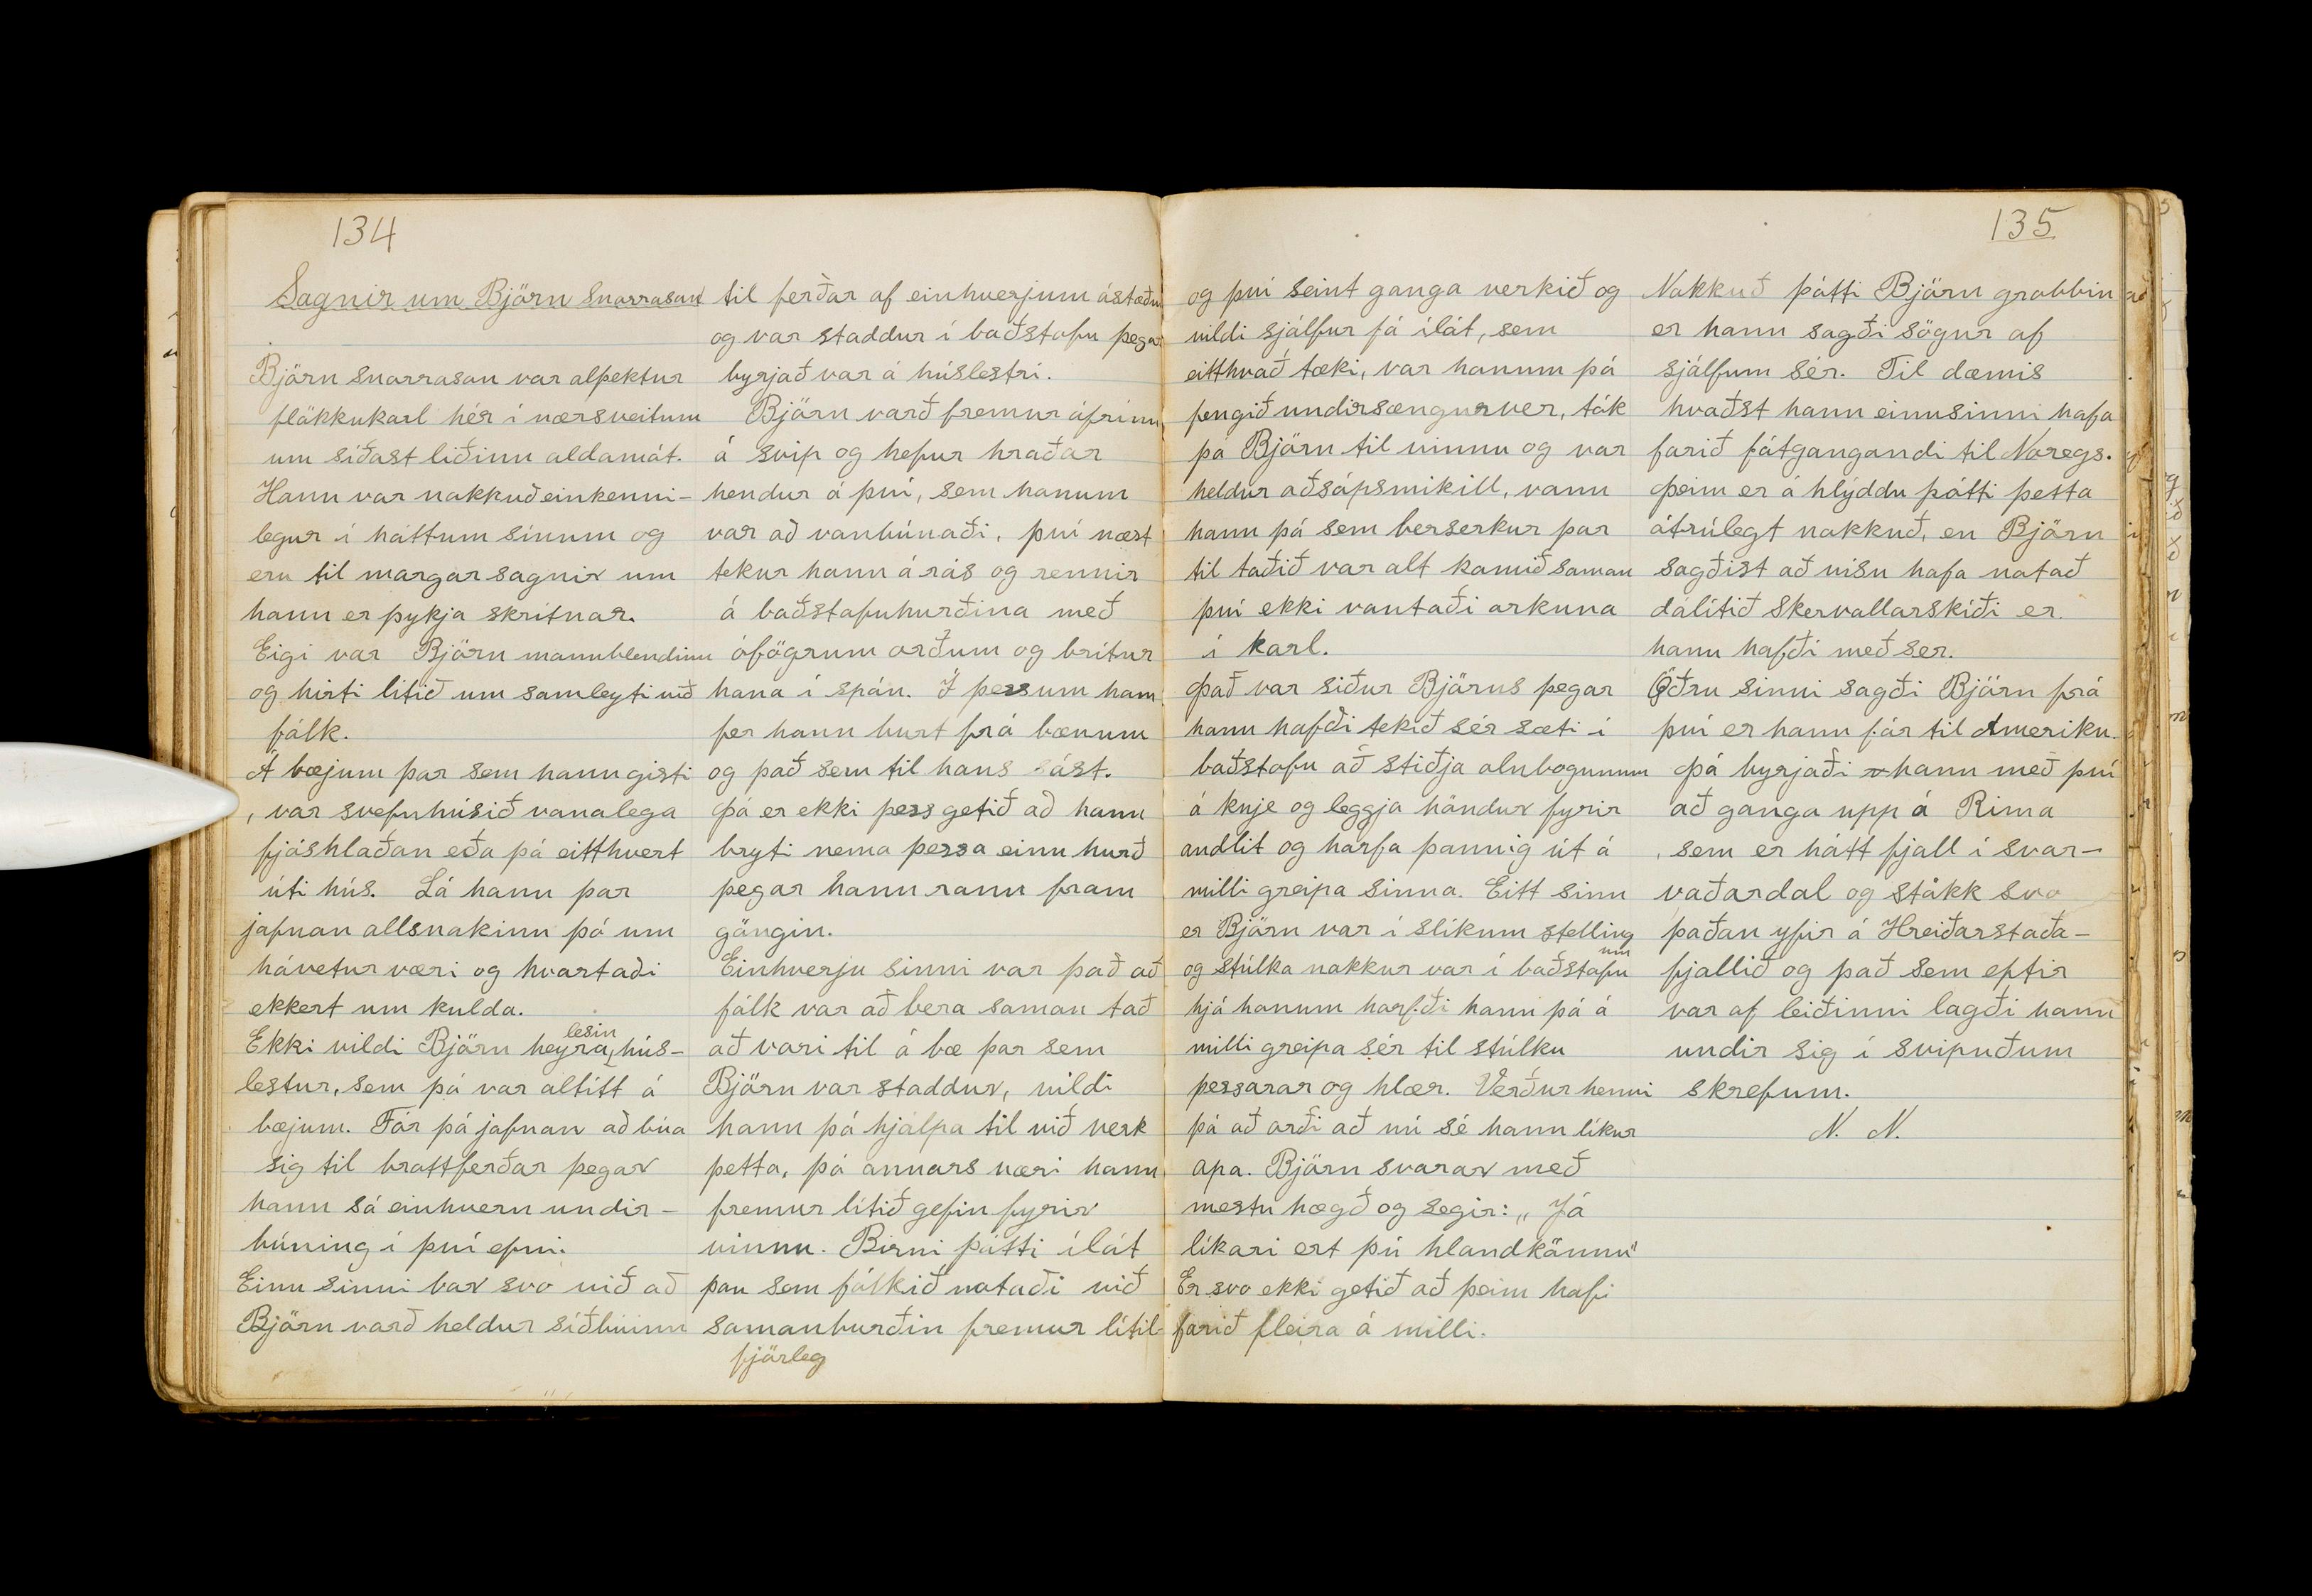 134
Sagnir um Björn Snorrason
Björn Snorrason var alþektur
flökkukarl hér í nærsveitum
um síðast liðinn aldamót.
Hann var nokkuð einkenni-
legur í háttum sínum og
eru til margar sagnir um
hann er þykja skrítnar.
Eigi var Björn mannblendinn
og hirti lítið um samleyti við
fólk.
Á bæjum þar sem hann gisti
, var svefnhúsið vanalega
fjóshlaðan eða þá eitthvert
úti hús. Lá hann þar
jafnan allsnakinn þó um
hávetur væri og kvartaði
ekkert um kulda.
Ekki vildi Björn heyra lesin hús-
lestur, sem þá var altítt á
bæjum. Fór þá jafnan að búa
sig til brottferðar þegar
hann sá einhvern undir-
búning í því efni.
Einu sinni bar svo við að
Björn varð heldur síðbúinn
til ferðar af einhverjum ástæðu
og var staddur í baðstofu þegar
byrjað var á húslestri.
Björn varð fremur ófrínn
á svip og hefur hraðar
hendur á því, sem honum
var að vanbúnaði, því næst
tekur hann á rás og rennir
á baðstofuhurðina með
ófögrum orðum og brítur
hana í spón. Í þessum ham
fer hann burt frá bænum
og það sem til hans sást.
Þá er ekki þess getið að hann
bryti nema þessa einu hurð
þegar hann rann fram
göngin.
Einhverju sinni var það að
fólk var að bera saman tað
að vori til á bæ þar sem
Björn var staddur, vildi
hann þá hjálpa til við verk
þetta, þó annars væri hann
fremur lítið gefin fyrir
vinnu. Birni þótti ílát
þau sem fólkið notaði við
samanburðin fremur lítil-
fjörleg
135
og því seint ganga verkið og
vildi sjálfur fá ílát, sem
eitthvað tæki, var honum þá
fengið undirsængurver, tók
þa Björn til vinnu og var
heldur aðsópsmikill, vann
hann þá sem berserkur þar
til taðið var alt komið saman
því ekki vantaði orkuna
í karl.
Það var siður Björns þegar
hann hafði tekið sér sæti í
baðstofu að stiðja olnbogunum
á knje og leggja höndur fyrir
andlit og horfa þannig út á
milli greipa sinna. Eitt sinn
er Björn var í slíkum stelling
um
og stúlka nokkur var í baðstofu
hjá honum horfði hann þá á
milli greipa sér til stúlku
þessarar og hlær. Verður henni
þá að orði að nú sé hann líkur
apa. Björn svarar með
mestu hægð og segir: „Já
líkari ert þú hlandkönnu“
Er svo ekki getið að þeim hafi
farið fleira á milli.
Nokkuð þótti Björn grobbin
er hann sagði sögur af
sjálfum sér. Til dæmis
kvaðst hann einusinni hafa
farið fótgangandi til Noregs.
Þeim er á hlýddu þótti þetta
ótrúlegt nokkuð, en Björn
sagðist að vísu hafa notað
dálítið Skervallarskíði er
hann hafði með ser.
Öðru sinni sagði Björn frá
því er hann fór til Ameriku.
Þá byrjaði hann með því
að ganga upp á Rima
, sem er hátt fjall í svar-
vaðardal og stökk svo
þaðan yfir á Hreiðarstaða-
fjallið og það sem eftir
var af leiðinni lagði hann
undir sig í svipuðum
skrefum.
N. N.